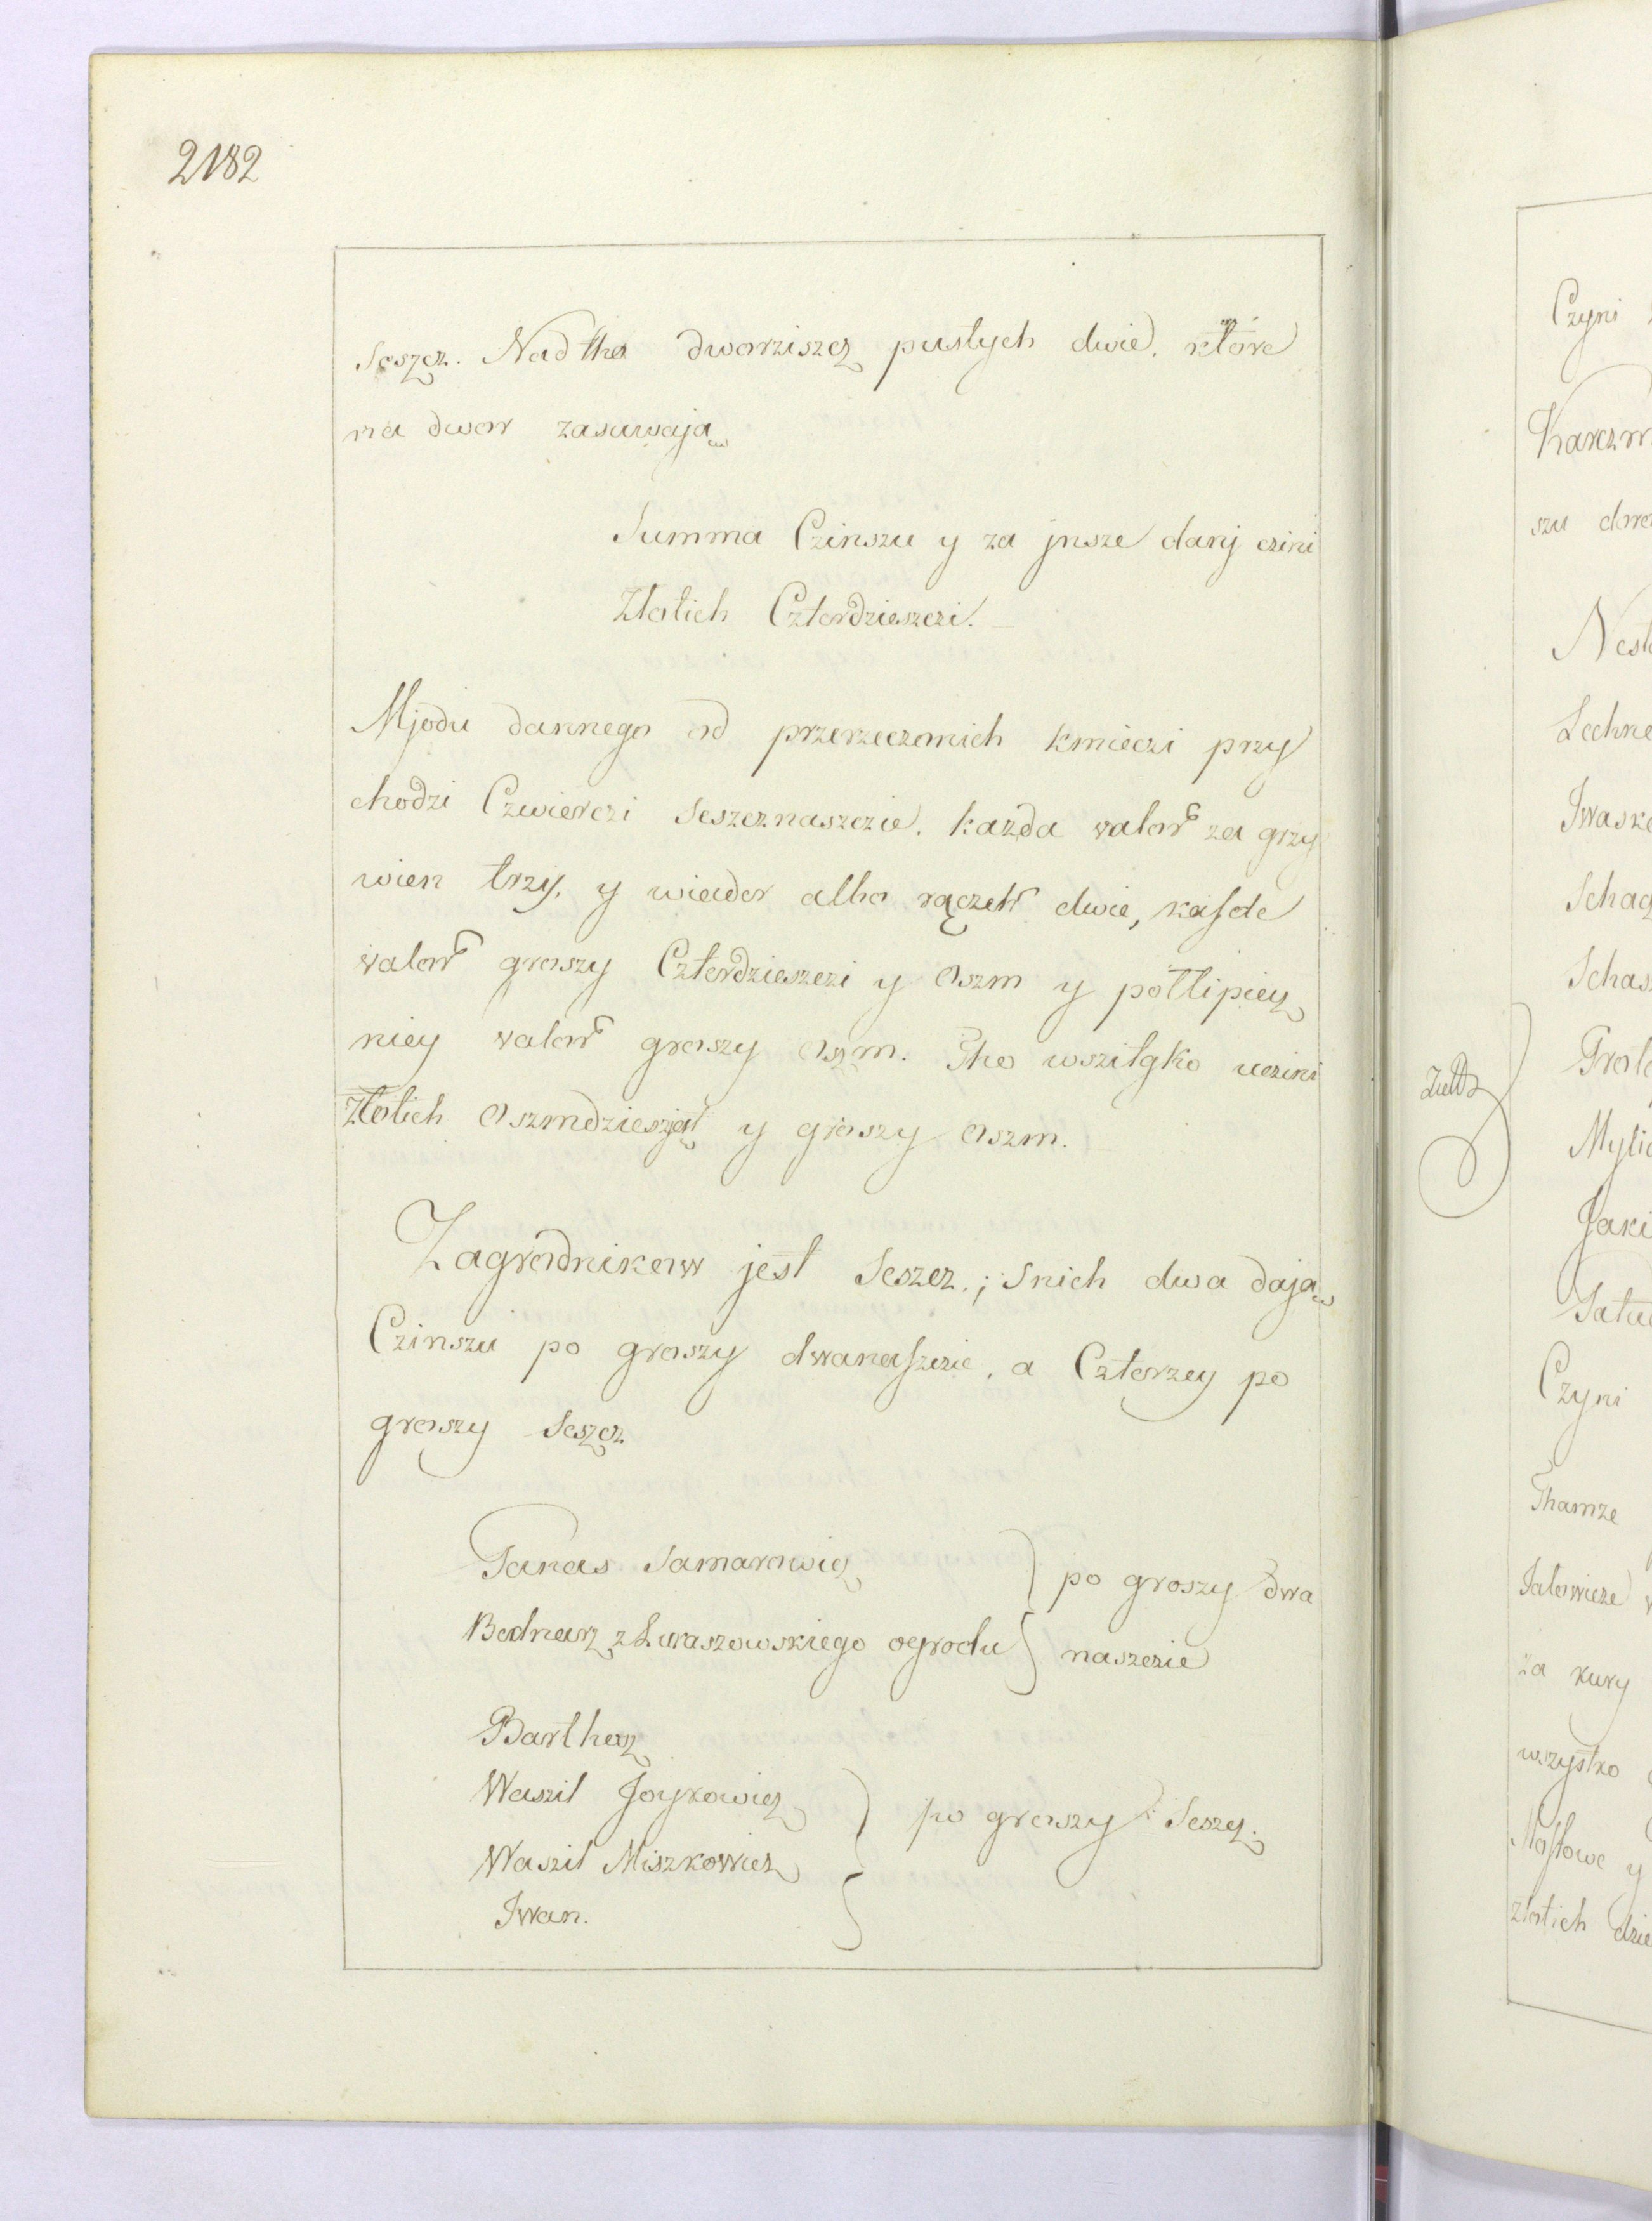 2182
seszcz. Nad tho dworziszcz pustych dwie. które
na dwor zasiewają
Summa Czinszu y za jnsze danj czini
Złotich Czterdzieszczi.
Mjodu dannego od przerzeczonich kmieczi przy
chodzi Czwierczi seszcznaszczie. każda valor za grzy
wien trzy. y wiader albo rączek dwie, kaſde
valor groszy Czterdzieszczi y oszm y póllipiecz
niey valor groszy oszm. Tho wszitgko uczini
Złotich oszmdziesząt y groszy oszm.
Zagrodnikow jest seszcz.; Snich dwa dają
Czinszu po groszy dwanaſzczie, a Czterzey po
groszy seszcz
Panas Samarowicz
Bednarz z Luraszowskiego ogrodu
po groszy dwa
naszczie
Barthosz
Waszil Joykowicz
Waszil Miszkowicz
Iwan.
po groszy seszcz.
Czyni
Karczm
szu dwa
Nest
Lechne
Iwask
Schac
Schas
Prot
Myli
Jaki
Czyni
Thamze
Jałowicze
za kury
wszystko
Stołowe y
złotich dzie